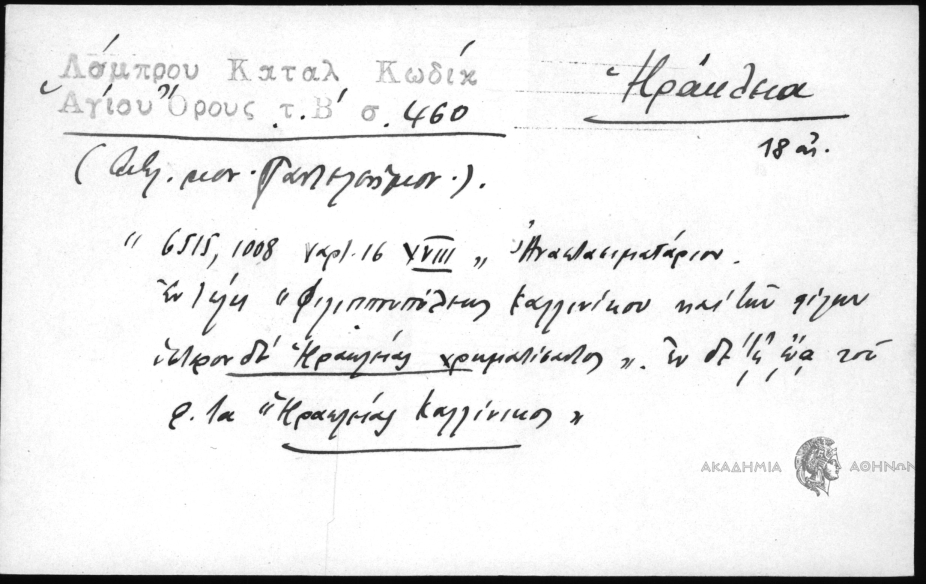 Λάμπρου Καταλ Κωδίκ
Ἁγίου Ὄρους τ. Β' σ. 460
Ἡράκλεια
18 αἰ.
μον. Παντελεήμον.).
" 6515, 1008 χαρτ. 16 XVIII „ Ἀναστασιματάριον.
Ἐν τέλει " Φιλιππουπόλεως Καλλινίκου καὶ τῶν φίλων
ὕστερον δὲ Ἡρακλείας χρηματίσαντος ". Ἐν δὲ τῇ ᾤᾳ τοῦ
φ. 1α "Ἡρακλείας Καλλίνικος"
ΑΚΑΔΗΜΙΑ ΑΘΗΝΩΝ